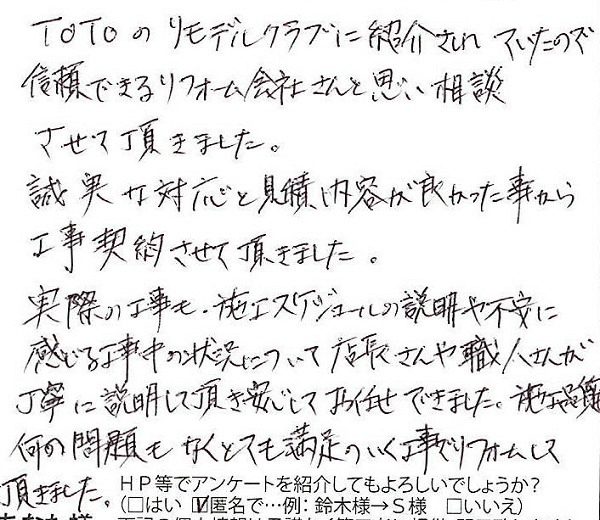 TOTOのリモデルクラブに紹介されていたので
信頼できるリフォーム会社さんと思い相談
させて頂きました。
誠実な対応と見積、内容が良かった事から
工事契約させて頂きました。
実際の工事も、施工スケジュールの説明や不安に
感じる工事中の状況について店長さんや職人さんが
丁寧に説明して頂き安心してお任せできました。施工後
何の問題もなくとても満足のいく工事でリフォームして
頂きました。
HP等でアンケートを紹介してもよろしいでしょうか?
(□はい ☑匿名で…例: 鈴木様→S様 □いいえ)